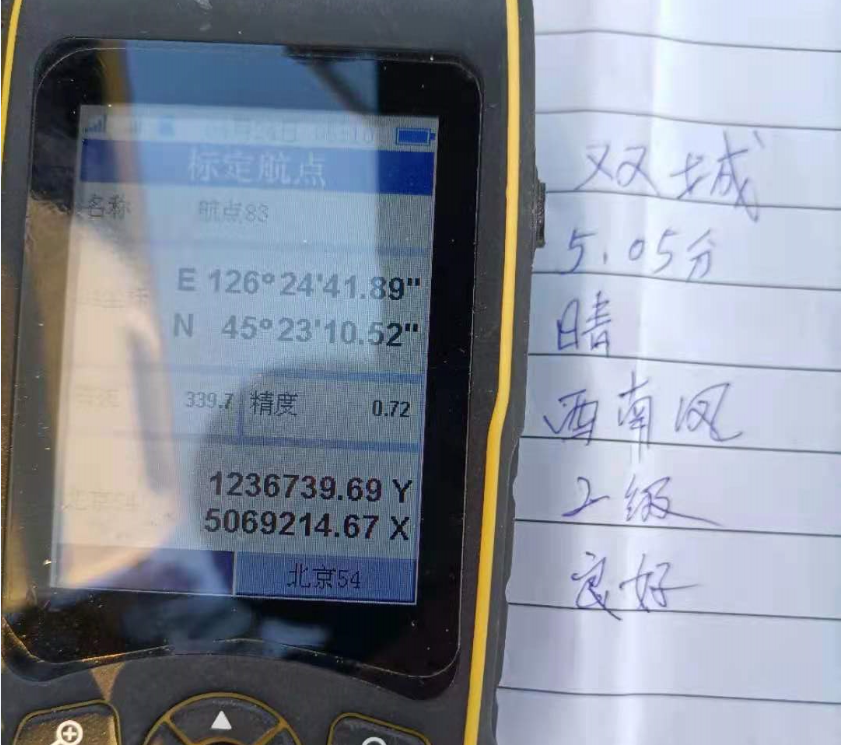 标定航点
名称 航点83
E 126°24'41.89"
N 45°23'10.52"
339.7 精度 0.72
1236739.69 Y
北京54 5069214.67 X
北京54
双城
5.05分
晴
西南风
2级
良好